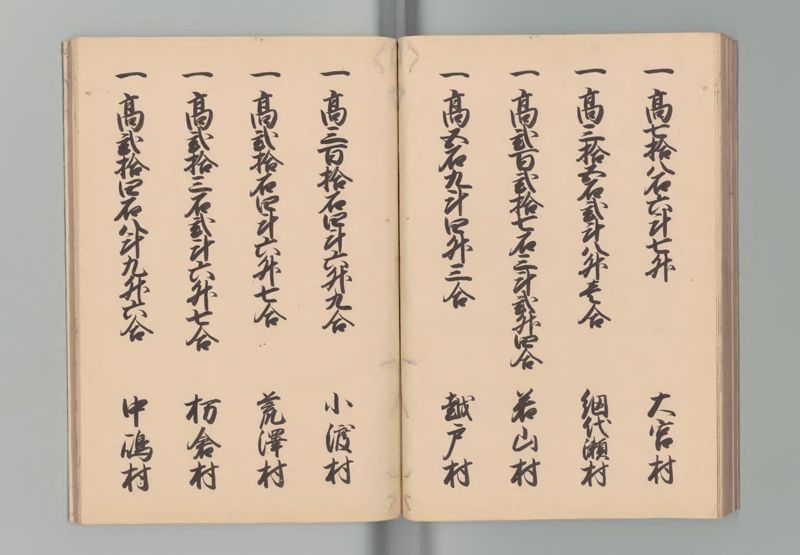 一 高七拾八石六斗七升 大宮村
一 高三拾五石弐斗八升壱合 網代瀬村
一 高弐百弐拾七石三斗弐升四合 若山村
一 高五石九斗四升三合 越戸村
一 高三百拾石四斗六升九合 小渡村
一 高弐拾石四斗六升七合 荒澤村
一 高弐拾三石弐斗六升七合 栃倉村
一 高弐拾四石八斗九升六合 中嶋村